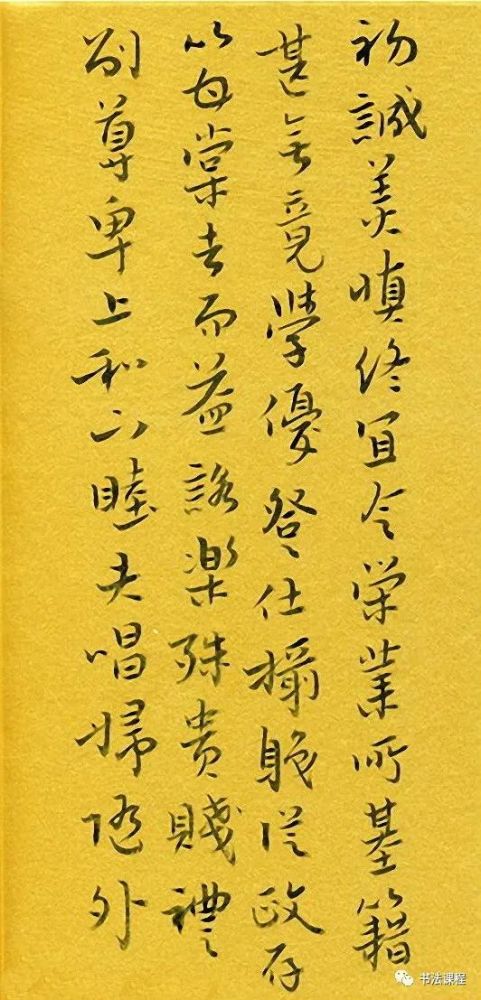 初誠美慎終宜令榮業所基籍
甚無竟學優登仕攝職從政存
以甘棠去而益詠樂殊貴賤禮
別尊卑上和下睦夫唱婦隨外
书法课程